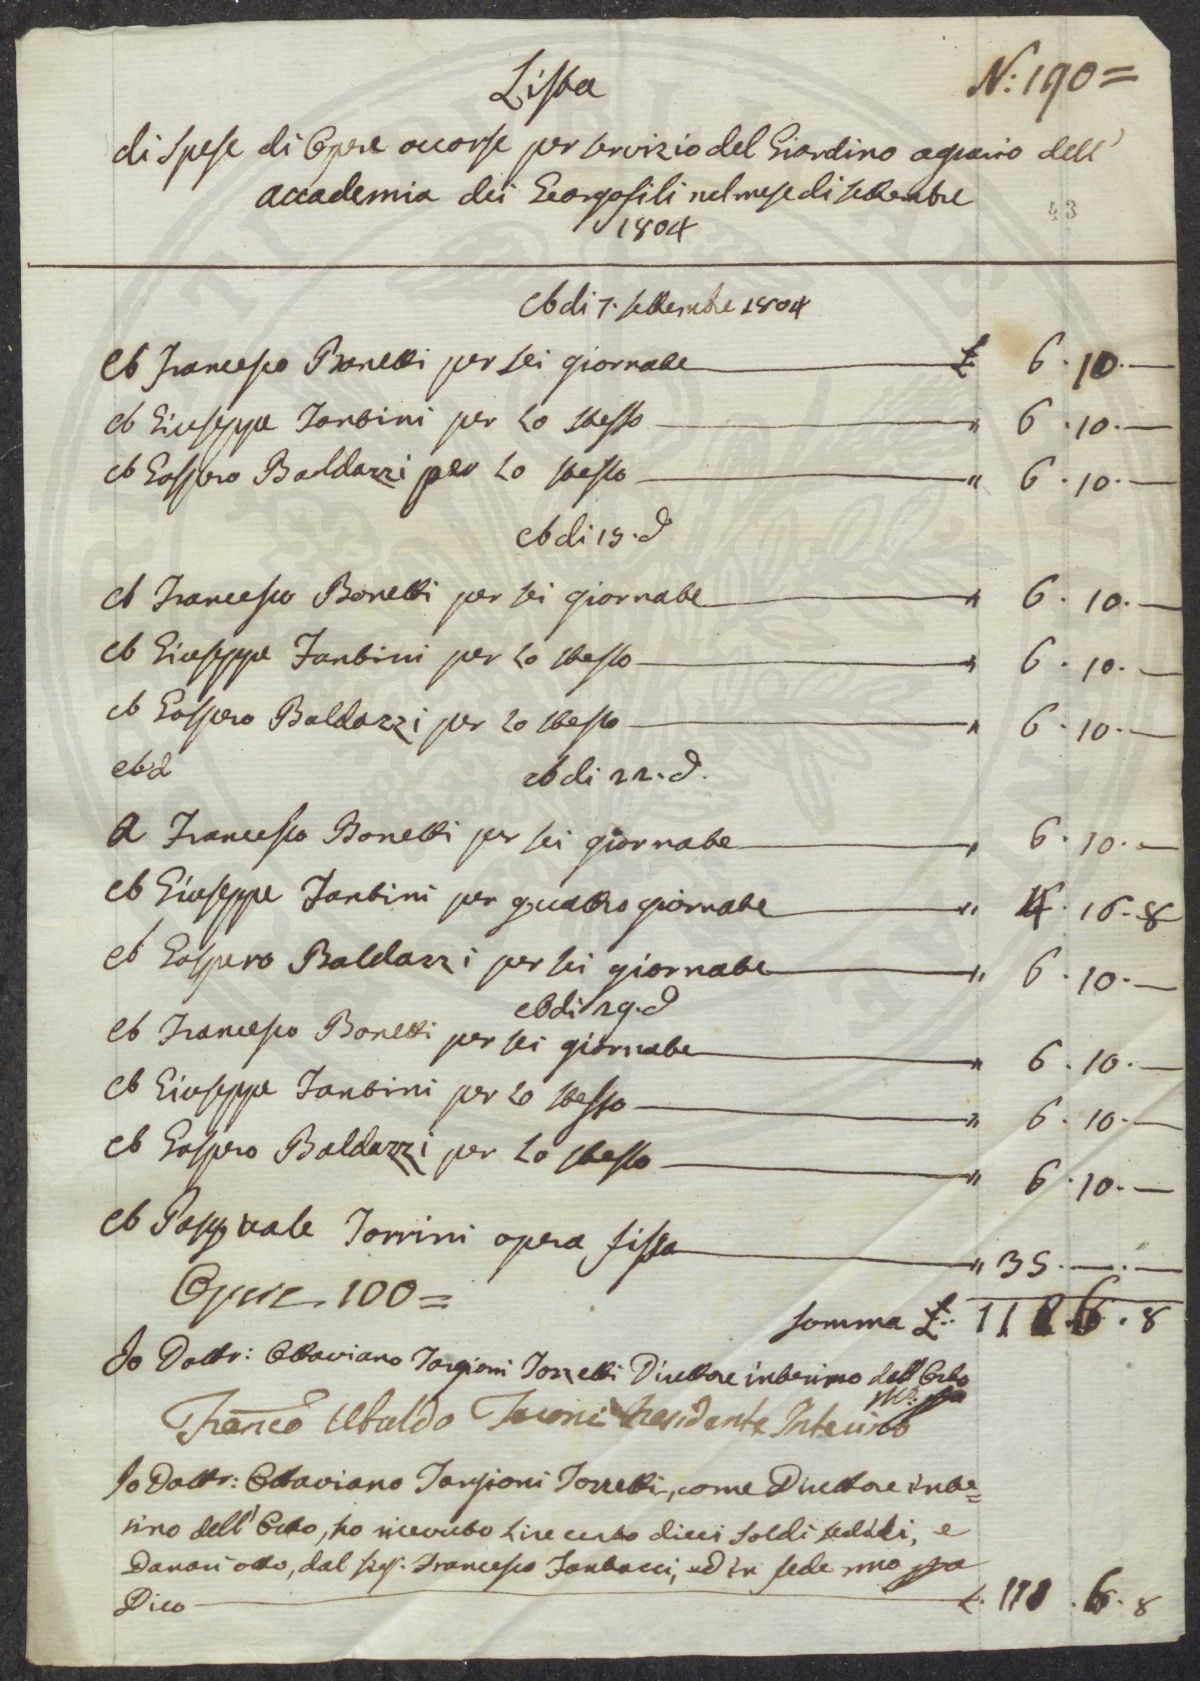 N: 190 =
Lista
di Spese di Opere occorse per servizio del Giardino agrario dell'
accademia dei Georgofili nel mese di settembre
1804
43
Adi 7. settembre 1804
A Francesco Bonetti per sei giornate £ 6. 10. —
A Giuseppe Tantini per lo stesso " 6. 10. —
A Gaspero Baldazzi per lo stesso " 6. 10. —
Adi 15. d
A Francesco Bonetti per sei giornate " 6. 10. —
A Giuseppe Tantini per lo stesso " 6. 10. —
A Gaspero Baldazzi per lo stesso " 6. 10. —
Adi 22. d.
A Francesco Bonetti per sei giornate " 6. 10. —
A Giuseppe Tantini per quattro giornate " 4. 16. 8
A Gaspero Baldazzi per sei giornate " 6. 10. —
Adi 29. d
A Francesco Bonetti per sei giornate " 6. 10. —
A Giuseppe Tantini per lo stesso " 6. 10. —
A Gaspero Baldazzi per lo stesso " 6. 10. —
A Pasquale Torrini opera fissa " 35. —. —
Opere 100 =
somma £. 6. 8
Io Dottr: Ottaviano Targioni Tozzetti Direttore interino dell'Orto
mo: ppa
Franco Ubaldo Presidente Interino
Io Dottr: Ottaviano Targioni Tozzetti, come Direttore inte=
rino dell'Orto, ho ricevuto Lire cento dieci soldi sedici, e
Danari otto, dal Sig. Francesco ed in fede mo ppa
Dico £. 6. 8